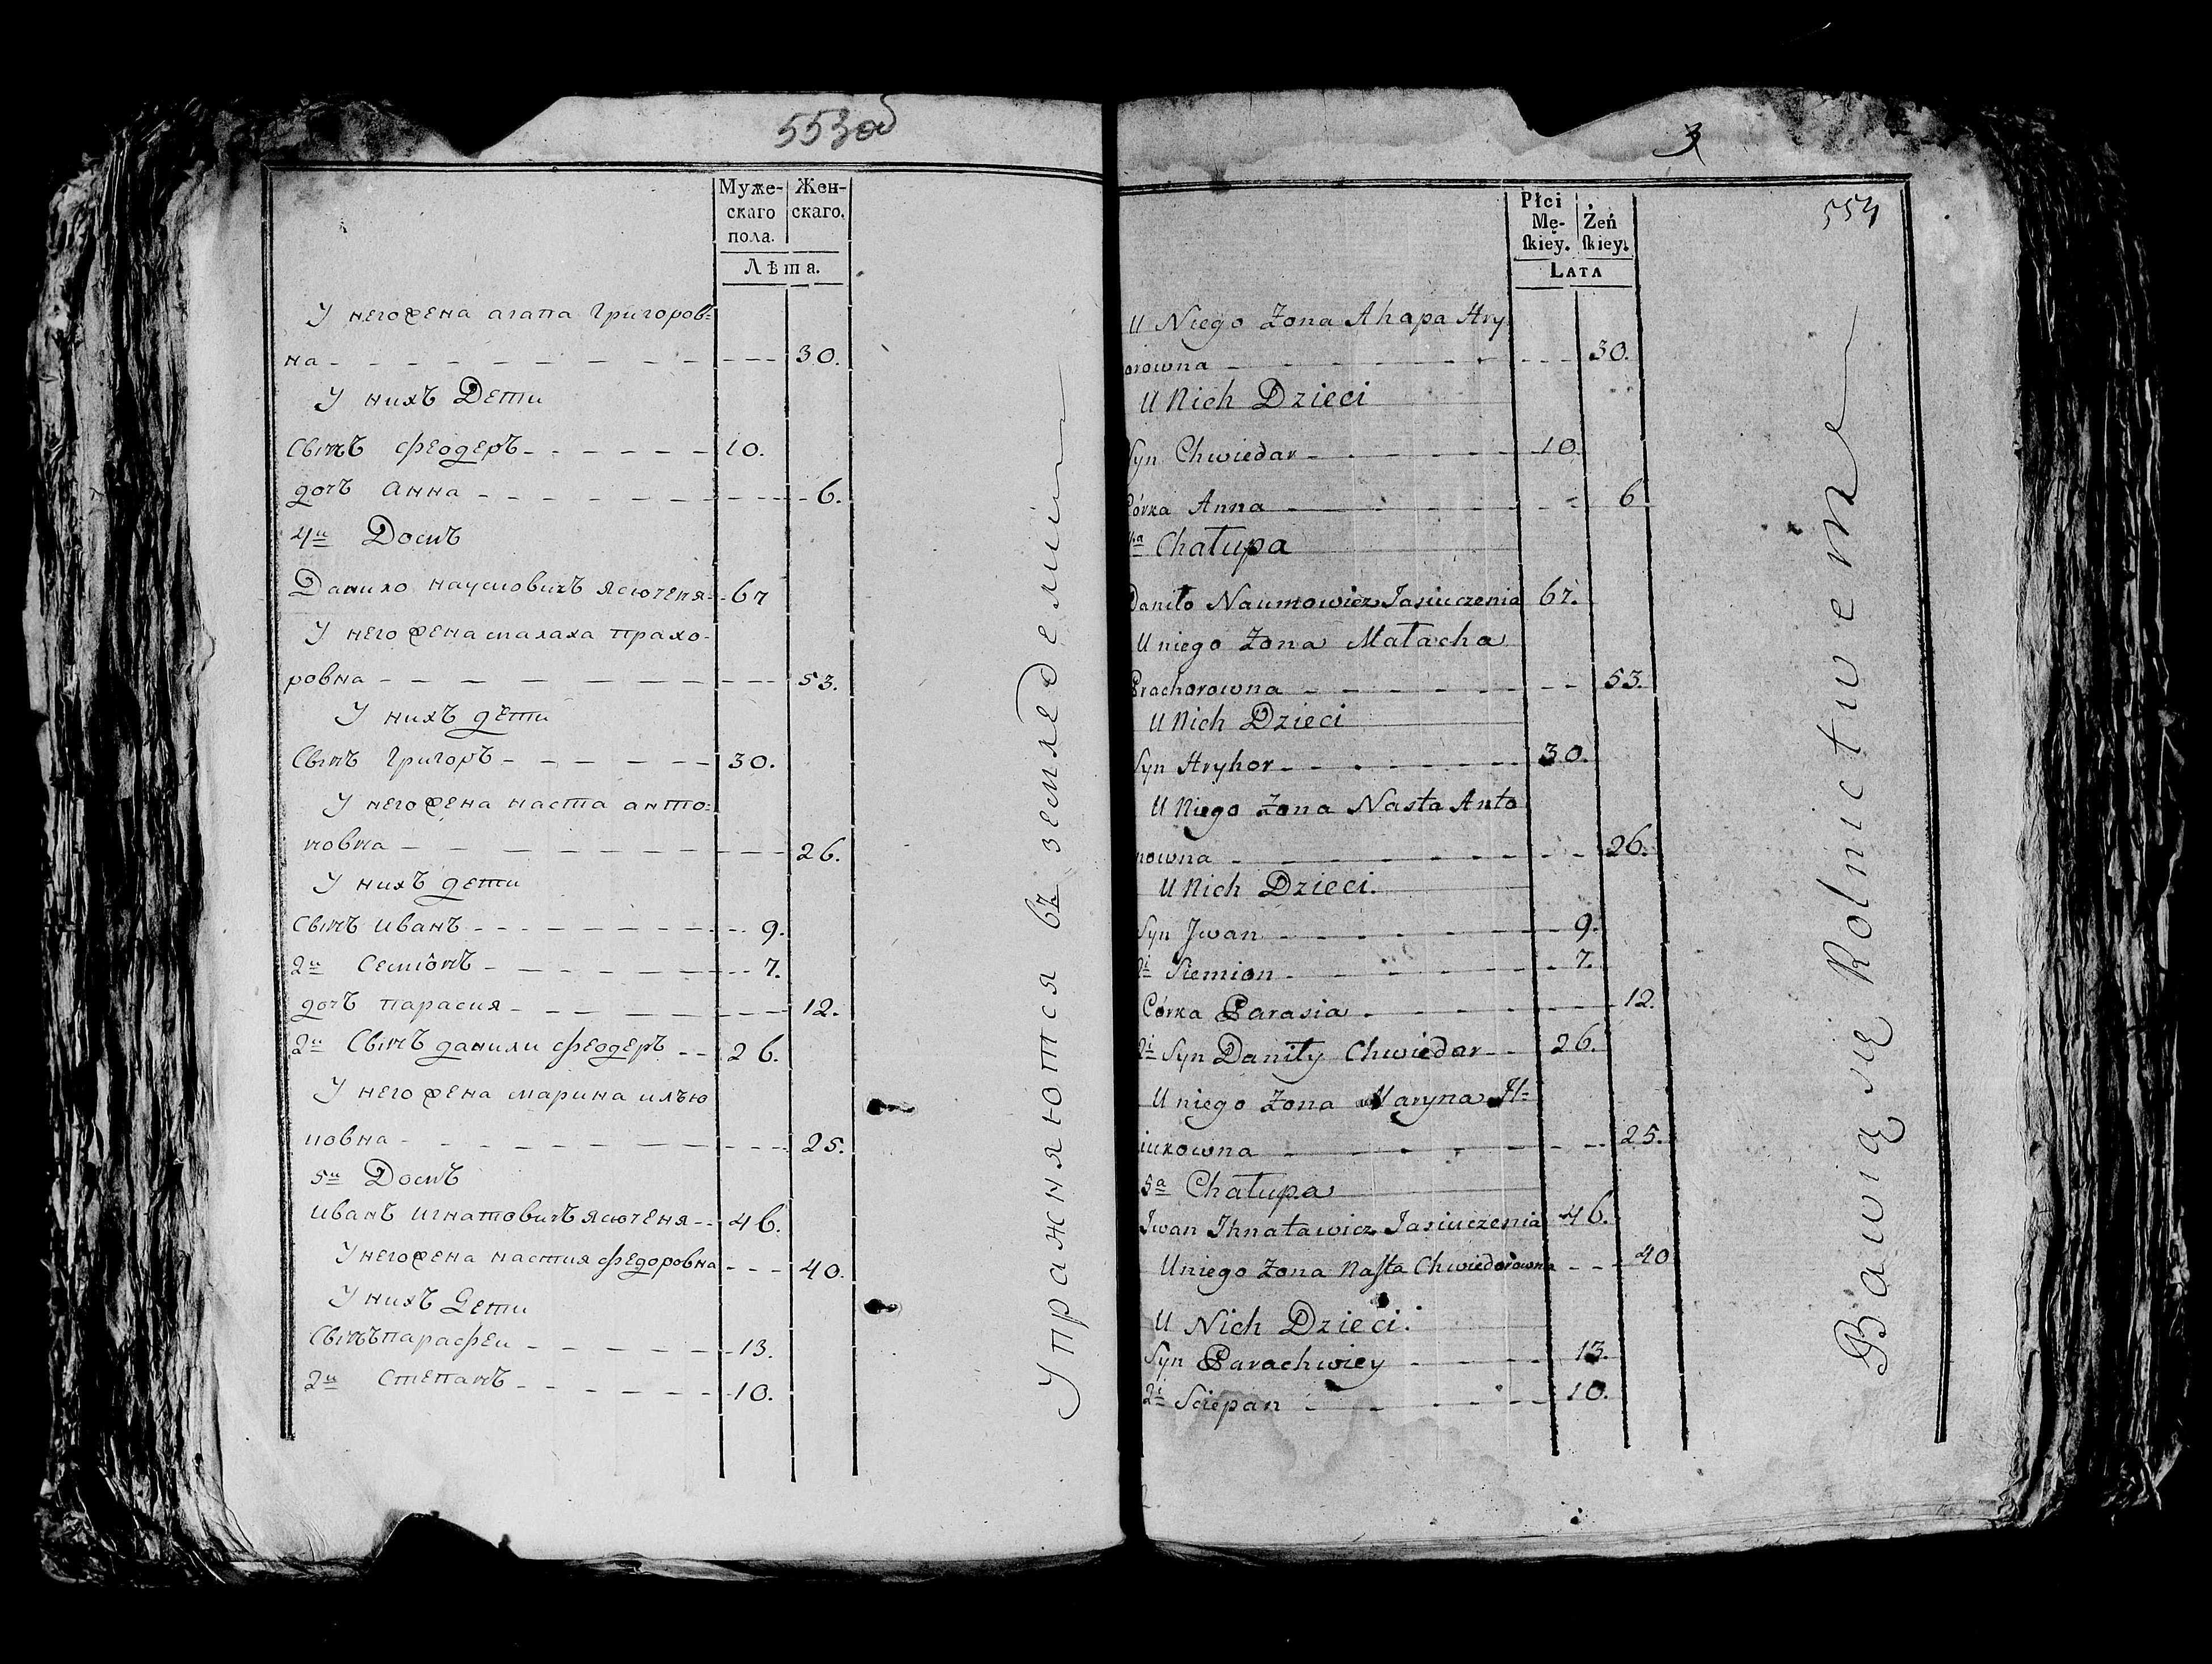 553об
Муже-
скаго
пола.
Жен-
скаго.
Лѣта.
У него жена агапа Григоров=
на 30.
У нихъ Дети
Сынъ Феодеръ 10.
дочъ Анна 6.
4й Домъ
Данило наумовичъ ясюченя 67
У него жена малаха прахо-
ровна 53.
У нихъ дети
Сынъ Григоръ 30.
У него жена наста анто=
новна 26.
У нихъ дети
Сынъ иванъ 9.
2й Семіонъ 7.
дочъ парасия 12.
2й Сынъ данили феодеръ 26.
У него жена марина илью
ковна 25.
5й Домъ
иванъ игнатовичъ ясюченя 46.
У него жена настия федоровна 40.
У нихъ дети
Сынъ парафеи 13.
2й Степанъ 10.
Упражняются въ земледелии
3
554
Płci
Mę-
skiey.
Żeń
skiey.
Lata
U Niego Zona Ahapa Hry
orowna 30.
U Nich Dzieci
Syn Chwiedar 10
Córka Anna 6
4a Chałupa
Daniło Naumowicz Jasiuczenia 67.
U niego Zona Małacha
Prachorowna 53.
U Nich Dzieci
Syn Hryhor 30.
U Niego Zona Nasta Anto
nowna 26.
U Nich Dzieci.
Syn Jwan 9.
2i Siemion 7.
Córka Parasia 12.
2i Syn Daniły Chwiedar 26.
U niego Zona Maryna Jl=
iukowna 25.
5a Chałupa
Jwan Jhnatawicz Jasiuczenia 46.
U niego Zona Nasta Chwiedorowna 40
U Nich Dzieci.
Syn Parachwiey 13.
2i Sciepan 10.
Bawią się Rolnictwem